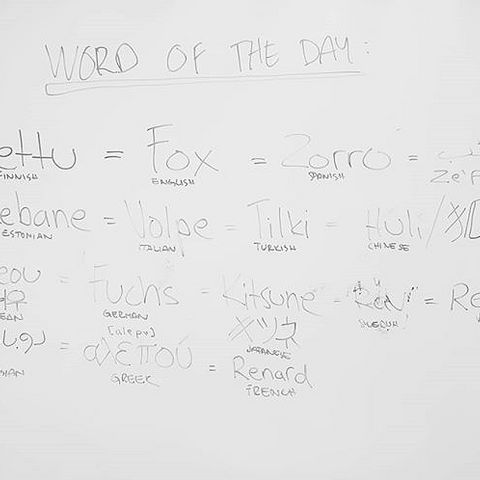 WORD OF THE DAY:
ettu = Fox = Zorro =
FINNISH ENGLISH SPANISH
ebane = Volpe = Tilki = Huli/狐
ESTONIAN ITALIAN TURKISH CHINESE
eou = Fuchs = Kitsune = Räv = Re
EAN GERMAN キツネ JAPANESE SWEDISH
روباه = [alepu] αλεπού = Renard
SIAN GREEK FRENCH